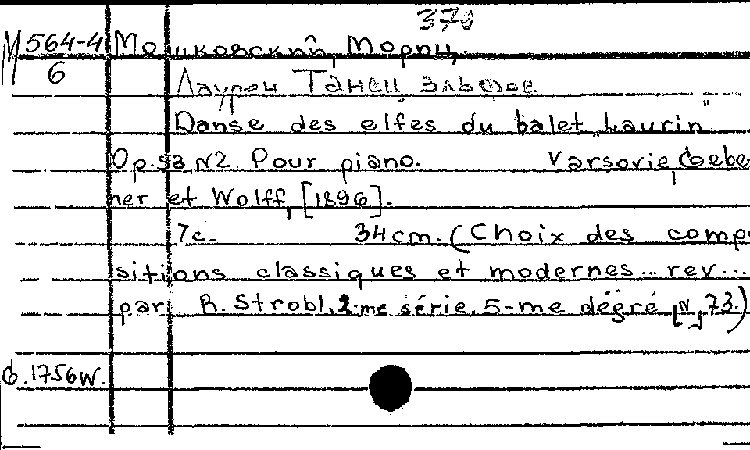 370
М 564-4 Мошковский, Мориц,
6
Лаурен Танец эльфов
Danse des elfes du balet Laurin"
Op. 53 N2 Pour piano. Varsovie, Gebe
ner et Wolff, [1896].
7с. 34cm. (Choix des compo
sitions classiques et modernes... rev...
par R. Strobl, 2-me série, 5-me dégré [N 73.)
Ф.1756w.